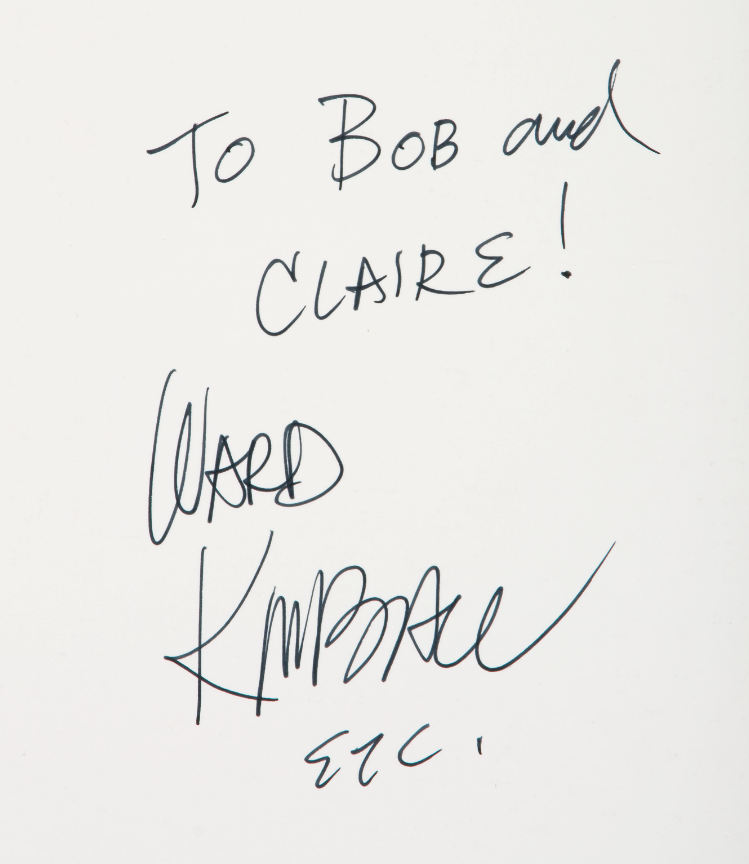 To BOB and
CLAIRE!
WARD
KIMBALL
ETC.